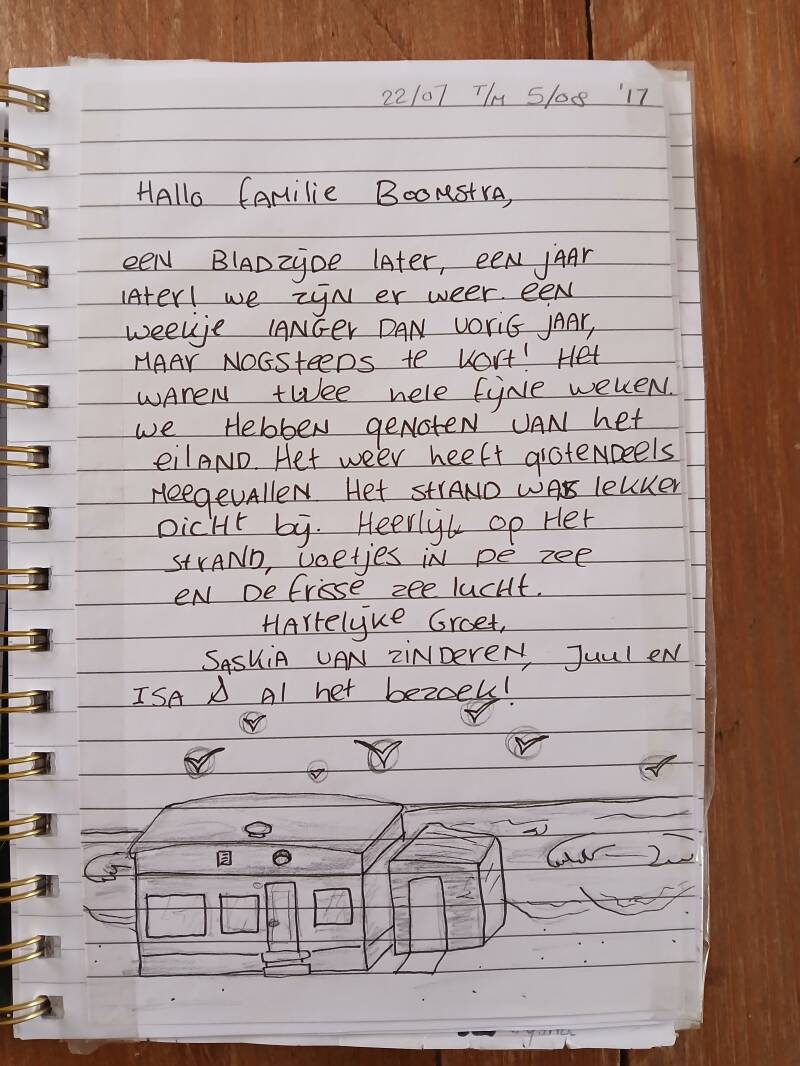 22/07 T/M 5/08 '17
Hallo familie Boomstra,
een Bladzijde later, een jaar
later! we zijn er weer. een
weekje langer dan vorig jaar,
maar nogsteeds te kort! Het
waren twee hele fijne weken.
we hebben genoten van het
eiland. Het weer heeft grotendeels
meegevallen. Het strand was lekker
dicht bij. Heerlijk op het
strand, voetjes in de zee
en de frisse zee lucht.
Hartelijke Groet,
Saskia van Zinderen, Juul en
Isa & al het bezoek!